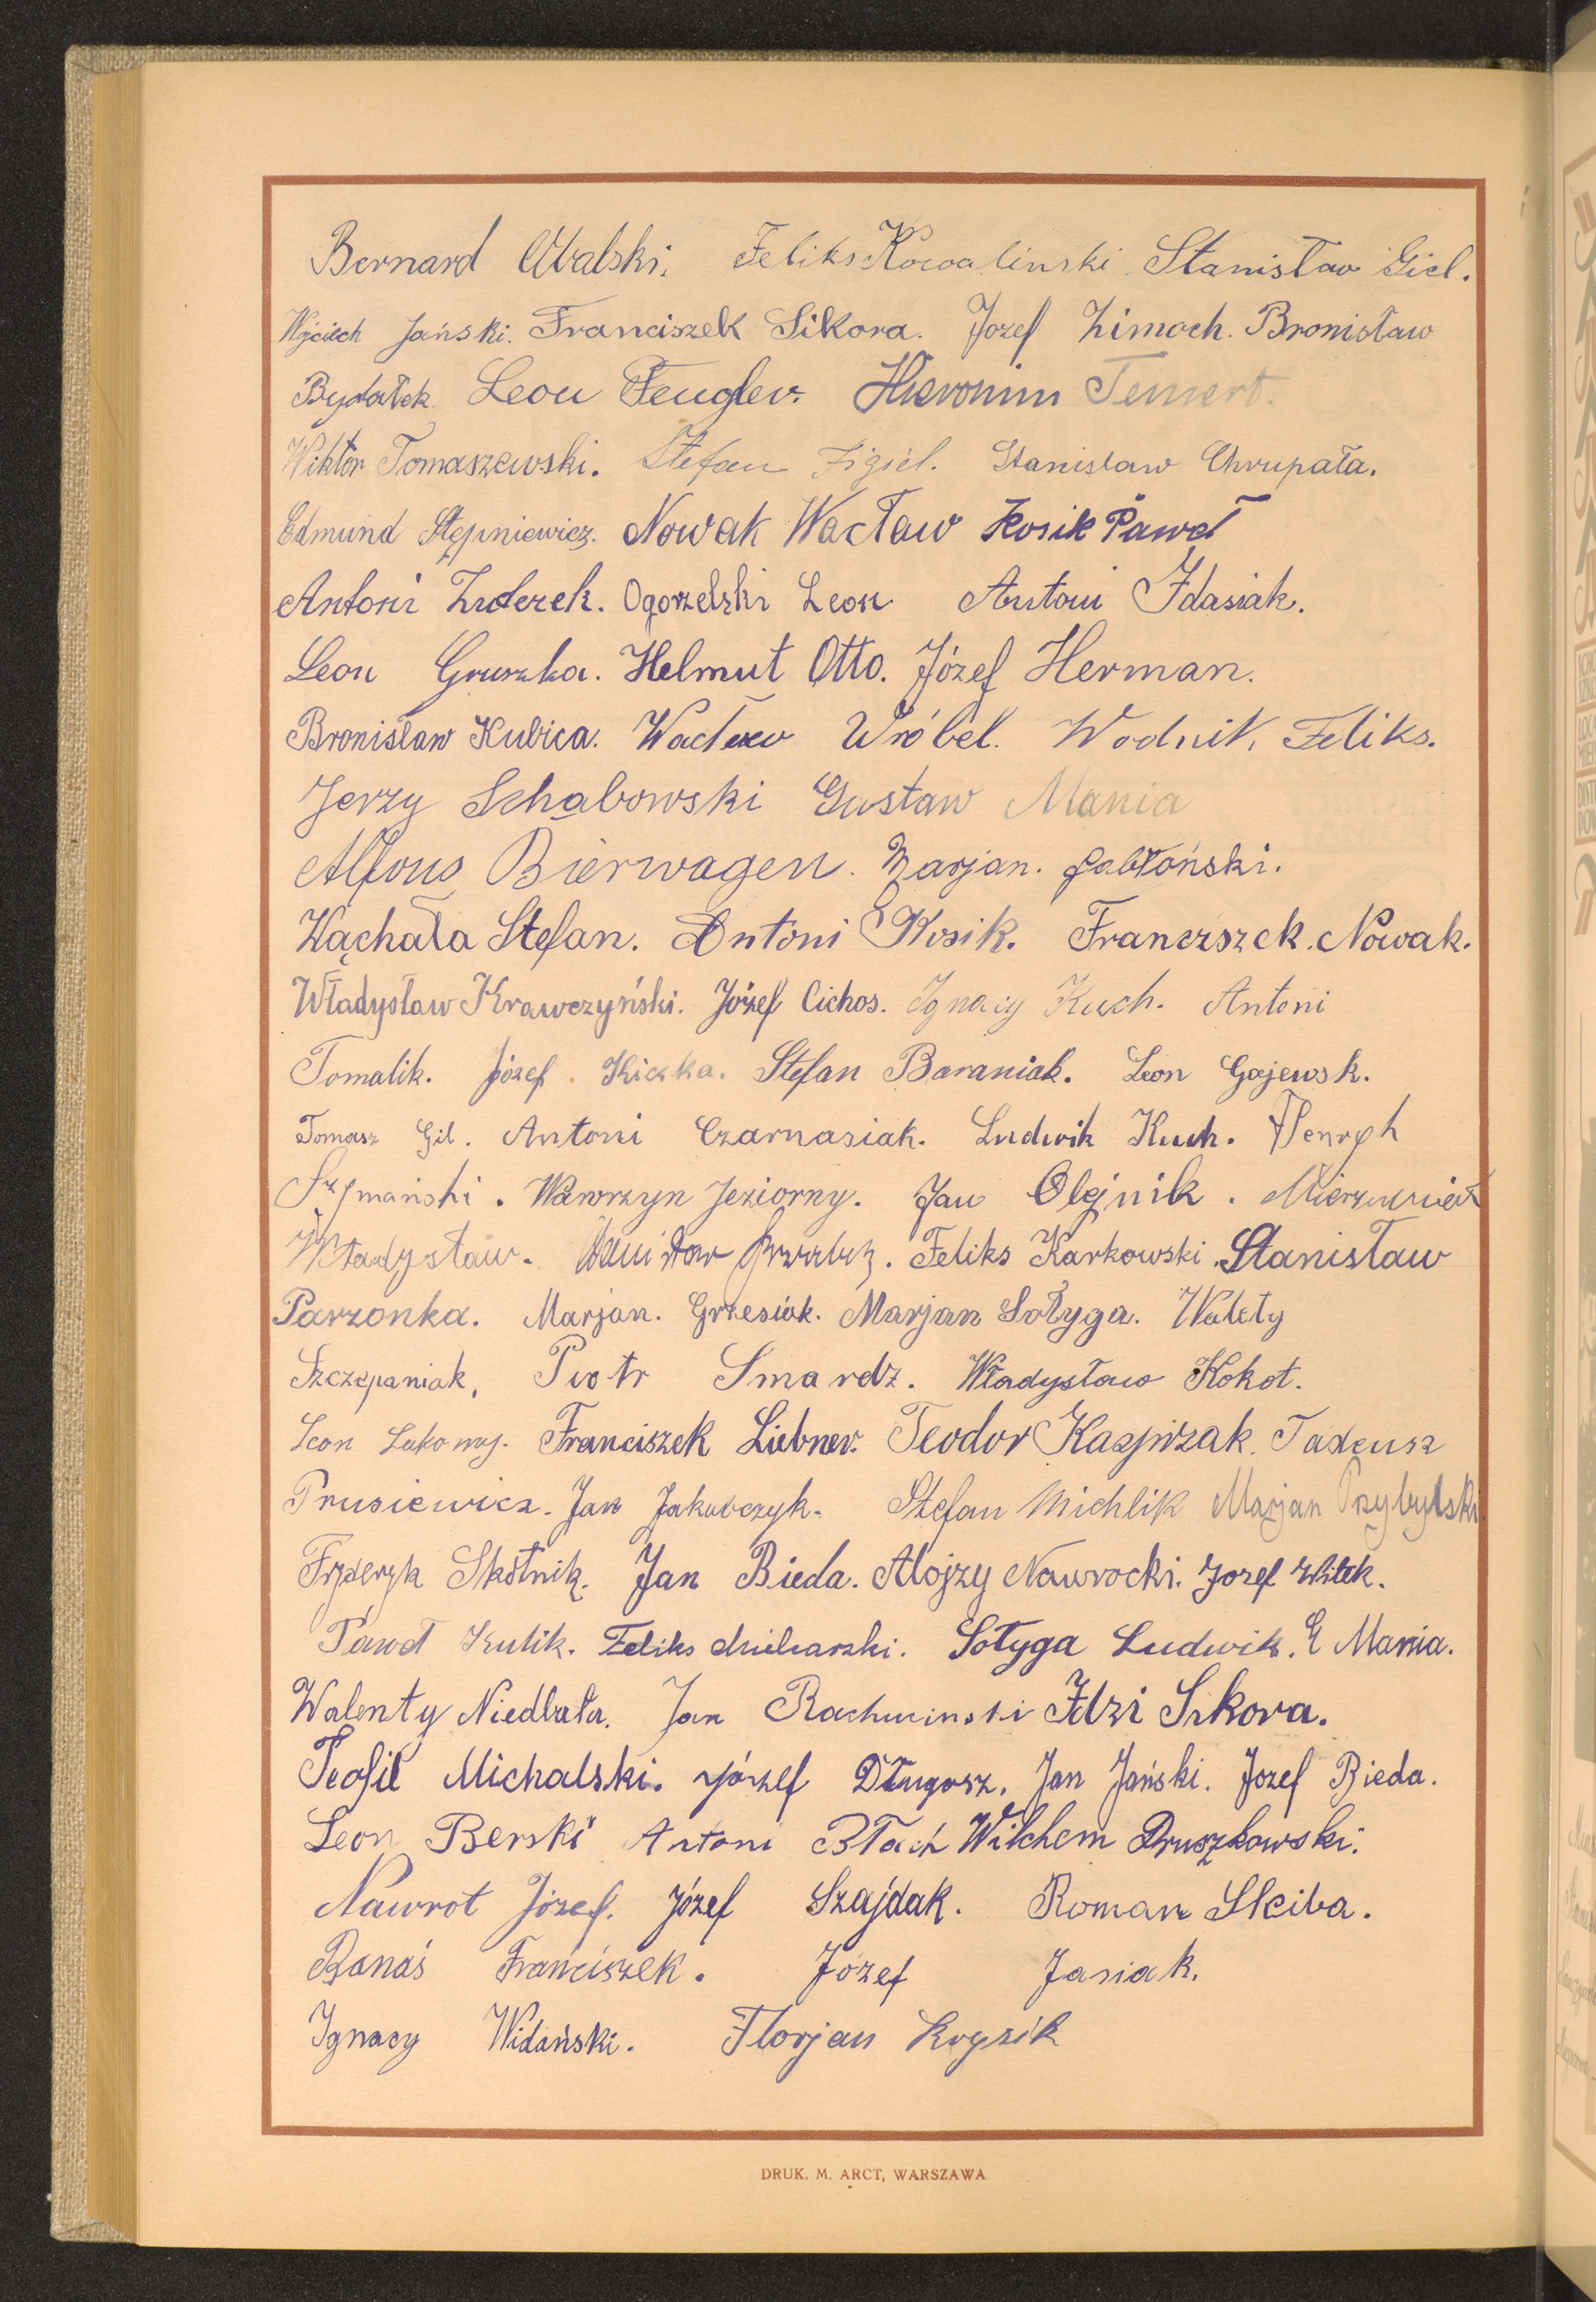 Bernard Walski. Feliks Kowalinski Stanisław Giel.
Wojciech Jański. Franciszek Sikora. Jozef Zimoch. Bronisław
Bydałek Leon Fengler. Hieronim Temert.
Wiktor Tomaszewski. Stefan Figiel. Stanisław Chrupała.
Edmund Stępniewicz. Nowak Wacław Kosik Paweł
Antoni Ogorzelski Leon Antoni Idasiak.
Leon Gruszka. Helmut Otto. Józef Herman.
Bronisław Kubica. Wacław Wróbel. Wodnik Feliks.
Jerzy Schabowski Gustaw Mania
Alfons Bierwagen. Marjan. Jabłoński.
Wąchała Stefan. Antoni Kosik. Franczszek. Nowak.
Władysław Krawczyński. Józef Cichos. Ignacy Kuch. Antoni
Tomalik. Józef. Kiczka. Stefan Baraniak. Leon Gajewsk.
Tomasz Gil. Antoni Czarnasiak. Ludwik Kuch. Henryk
Szymański. Wawrzyn Jeziorny. Jan Olejnik.
Władysław. Feliks Karkowski. Stanisław
Parzonka. Marjan. Grzesiak. Marjan Sołyga. Walety
Szczepaniak, Piotr Smardz. Władysław Kokot.
Leon Łakomy. Franciszek Liebner. Teodor Kaspirzak. Tadeusz
Prusiewicz. Jan Jakubczyk. Stefan Michlik Marjan Przybylski
Fryderyk Skotnik. Jan Bieda. Alojzy Nawrocki. Jozef Witek.
Paweł Kulik. Feliks Sołyga Ludwik. E Mania.
Walenty Niedbała. Jan Idzi Sikora.
Teofil Michalski. Józef Długosz. Jan Jański. Jozef Bieda.
Leon Berski Antoni Błach Wilchem Druszkowski.
Nawrot Józef. Józef Szajdak. Roman Skiba.
Banaś Franciszek. Józef Jasiak.
Ignacy Widański. Florjan Krysik
DRUK. M. ARCT, WARSZAWA